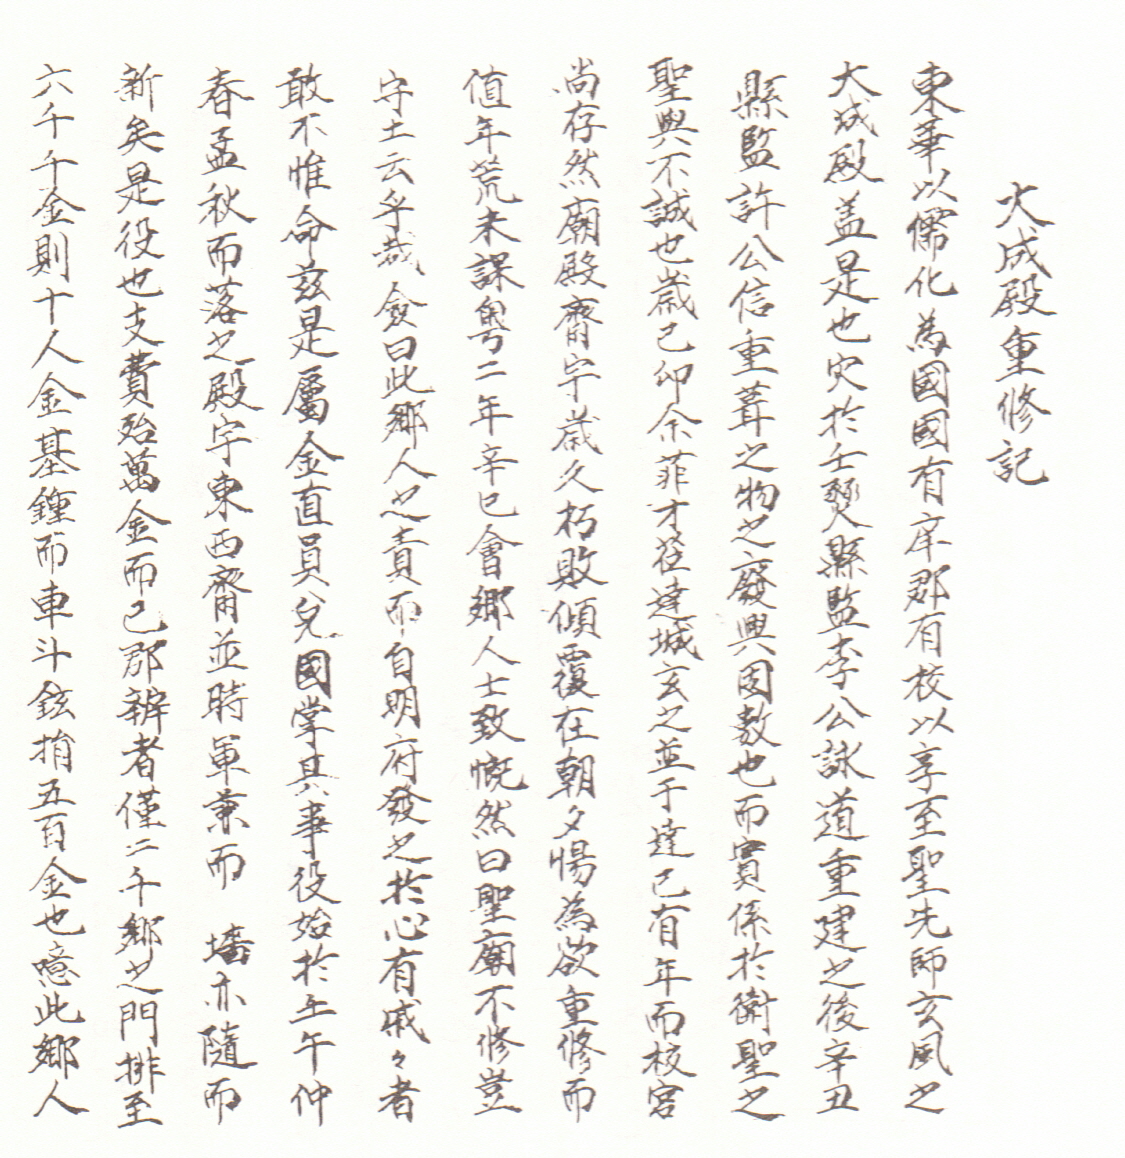 大成殿重修記
東華以儒化為國國有庠郡有校以享至聖先師玄風之
大成殿盖是也灾於壬燹縣監李公詠道重建之後辛丑
縣監許公信重葺之物之廢興固數也而實係於衛聖之
聖與不誠也歲己卯余菲才莅達城玄之並于達已有年而校宮
尚存然廟殿齋宇歲久朽敗傾覆在朝夕惕為欲重修而
值年荒未課粤二年辛巳會鄉人士致慨然曰聖廟不修豈
守土云乎裁僉曰此鄉人之責而自明府發之於心有戚々者
敢不惟命玆是屬金直員兌國掌其事役始於壬午仲
春孟秋而落之殿宇東西齋並時軍朿而 墻亦隨而
新矣是役也支費殆萬金而已郡辦者僅二千鄉之門排至
六千千金則十人金基鍾而車斗鉉捐五百金也噫此鄉人